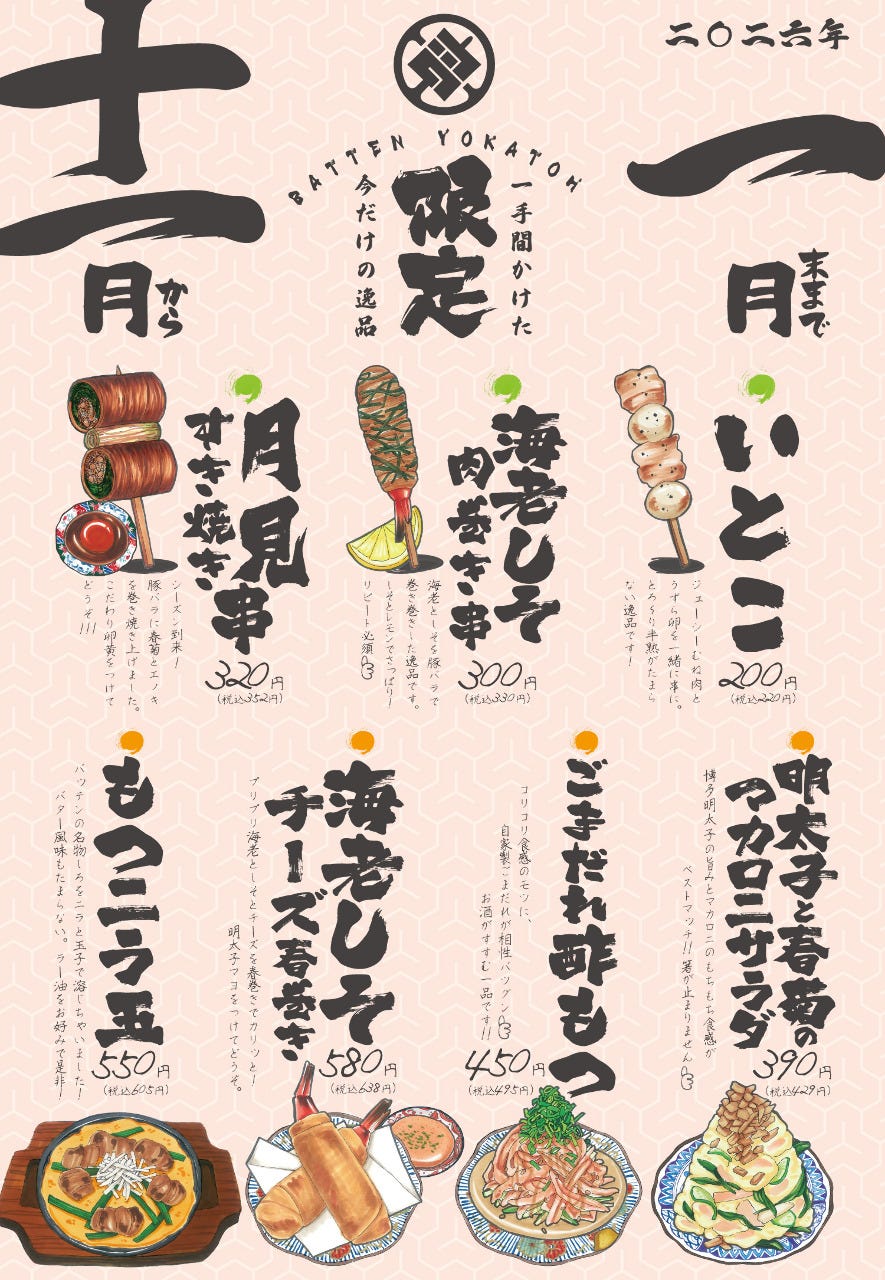 二〇二六年
一月
末まで
十一月
から
BATTEN YOKATOH
一手間かけた
限定
今だけの逸品
いとこ
200円
(税込220円)
ジューシーむね肉と
うずら卵を一緒に串に。
とろ〜り半熟がたまら
ない逸品です!
海老しそ
肉巻き串
300円
(税込330円)
海老としそを豚バラで
巻き巻きした逸品です。
しそとレモンでさっぱり!
リピート必須
月見
すき焼き串
320円
(税込352円)
シーズン到来!
豚バラに春菊とエノキ
を巻き焼き上げました。
こだわり卵黄をつけて
どうぞ!!!
明太子と春菊の
マカロニサラダ
390円
(税込429円)
博多明太子の旨みとマカロニのもちもち食感が
ベストマッチ!!箸が止まりません
ごまだれ酢もつ
450円
(税込495円)
コリコリ食感のモツに、
自家製ごまだれが相性バツグン
お酒がすすむ一品です!!
海老しそ
チーズ春巻き
580円
(税込638円)
プリプリ海老としそとチーズを春巻きでカリッと!
明太子マヨをつけてどうぞ。
もつニラ玉
550円
(税込605円)
バッテンの名物しろをニラと玉子で溶じちゃいました!
バター風味もたまらない。ラー油をお好みで是非!